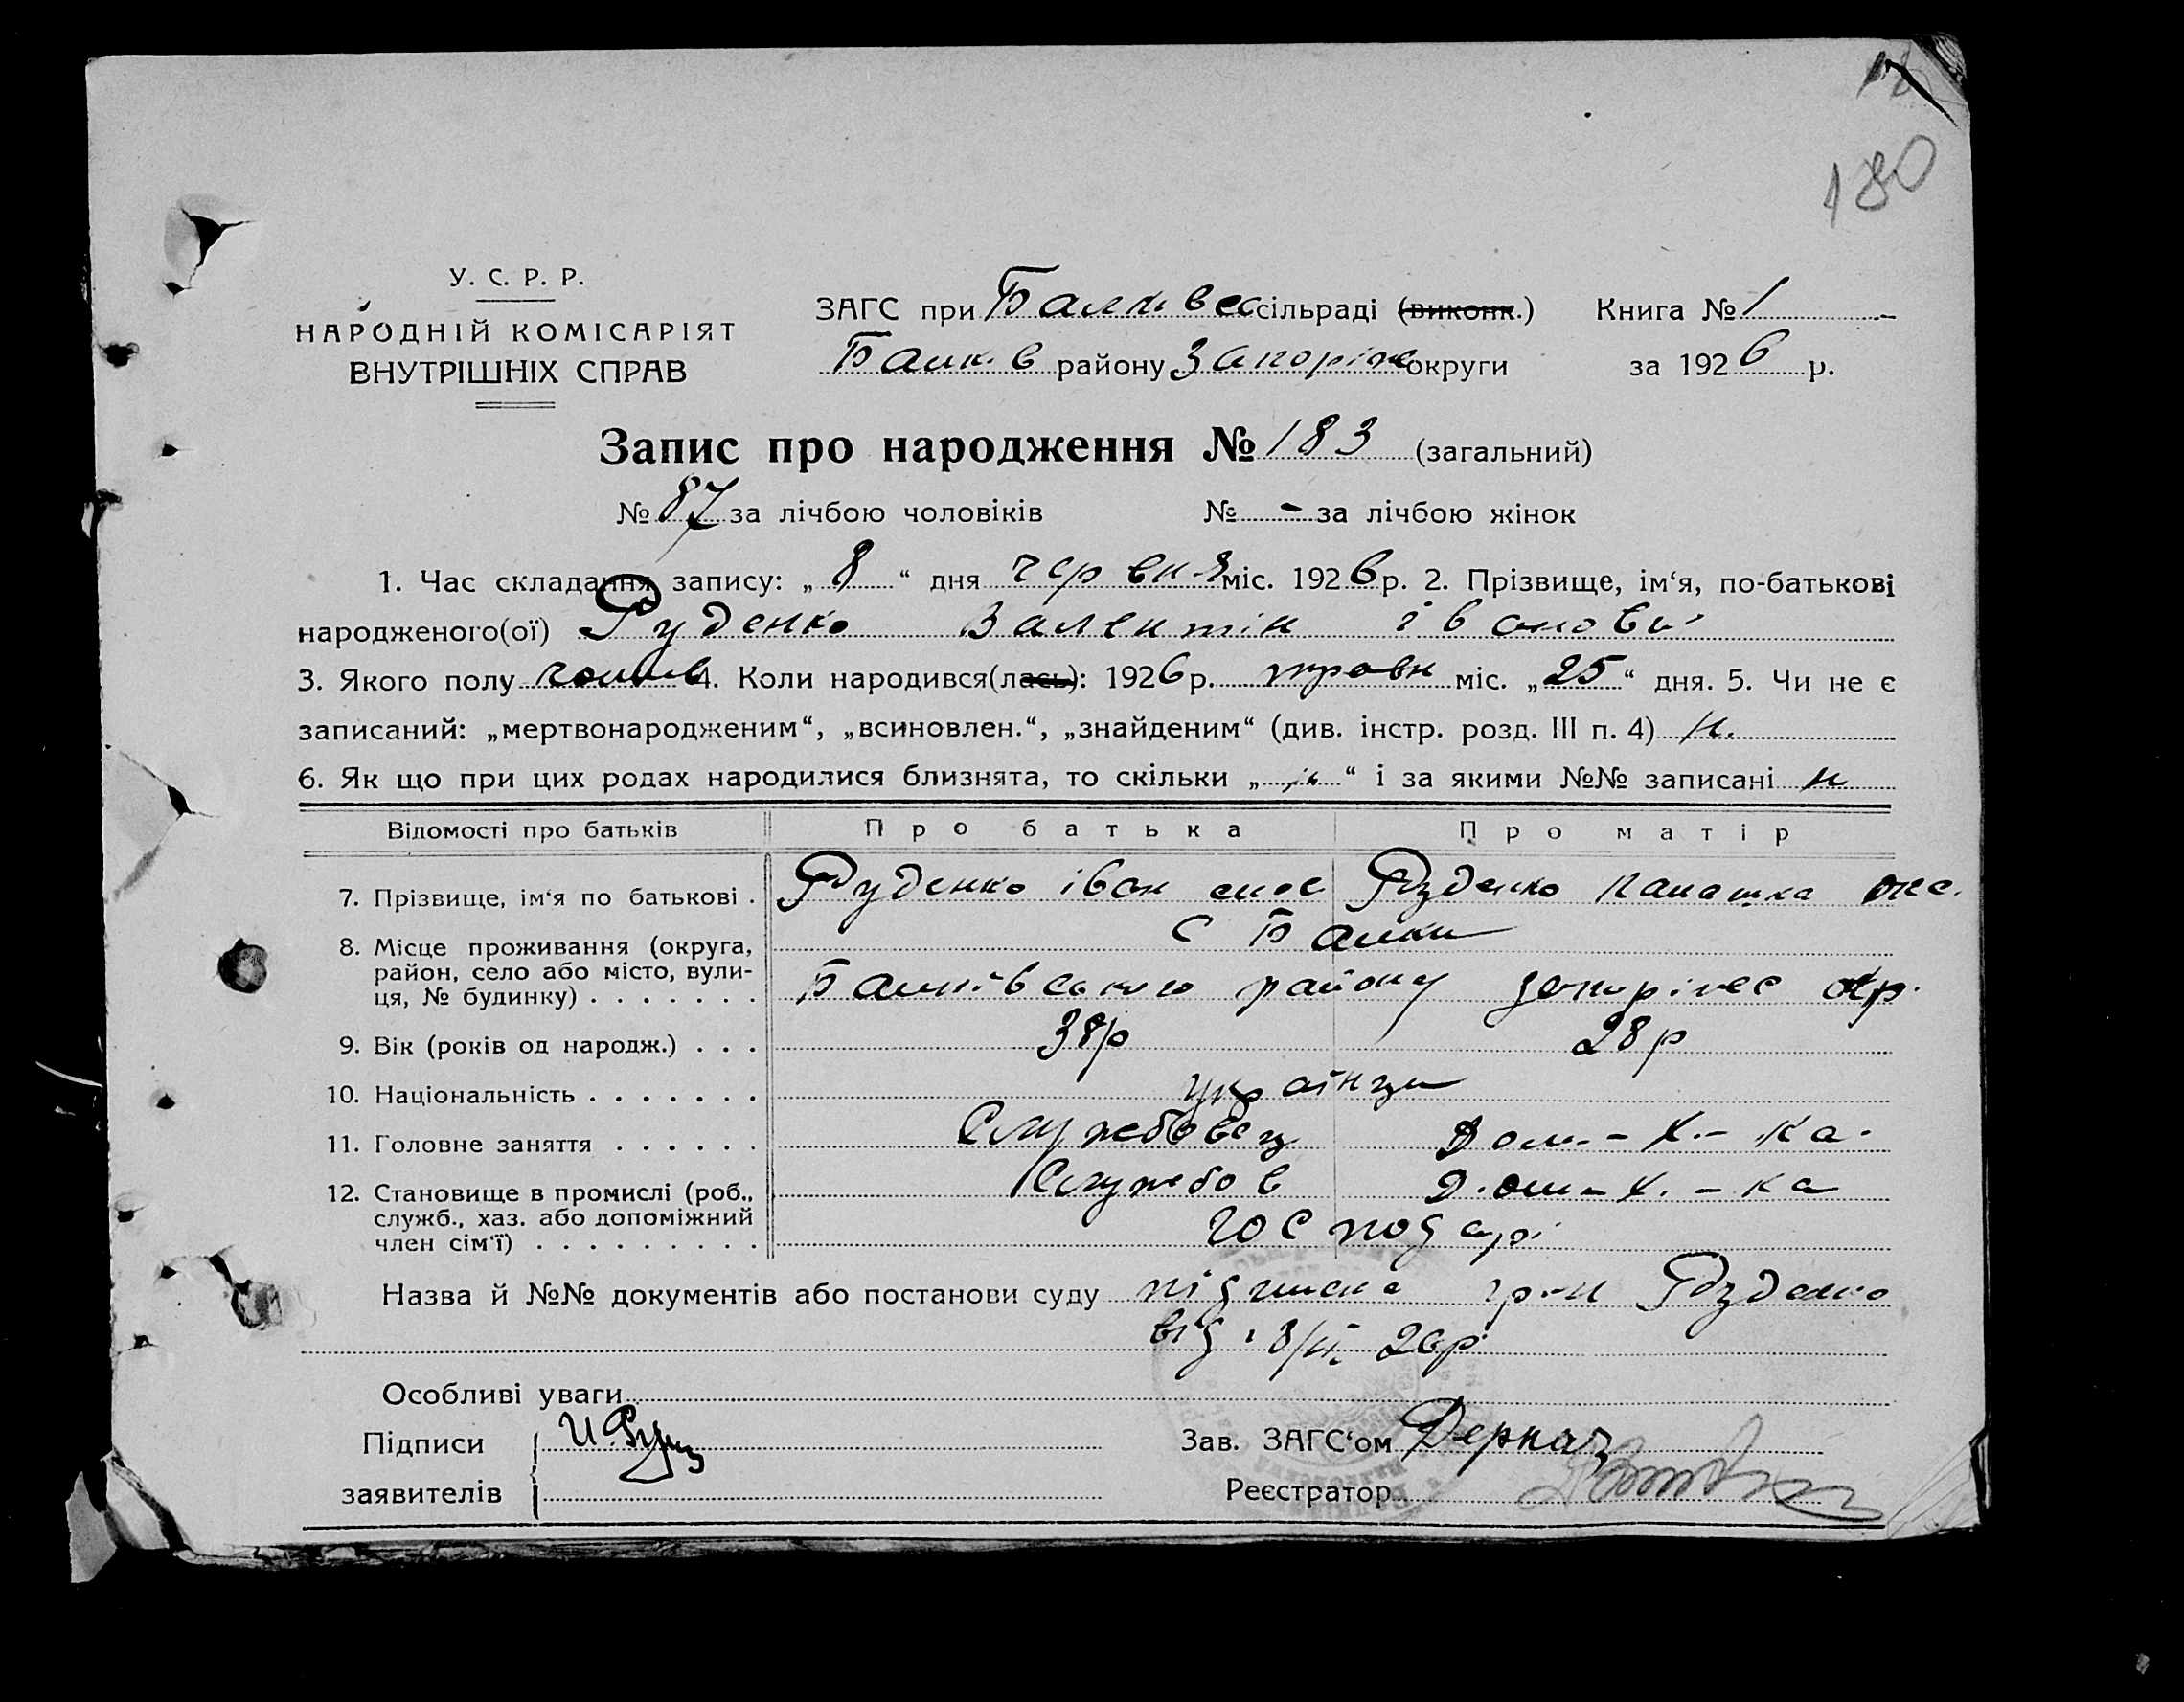 180
У. С. Р. Р.
НАРОДНІЙ КОМІСАРІЯТ
ВНУТРІШНІХ СПРАВ
ЗАГС при Балківес сільраді (виконк.) Книга № 1
Балк.в району Запоріж округи за 1926 р.
Запис про народження № 183 (загальний)
№ 87 за лічбою чоловіків № - за лічбою жінок
1. Час складання запису: „ 8 “ дня червня міс. 1926 р. 2. Прізвище, ім‘я, по-батькові
народженого(ої) Руденко Валентін іванови
3. Якого полу чолов 4. Коли народився(лась): 1926 р. травн міс. „ 25 “ дня. 5. Чи не є
записаний: „мертвонародженим“, „всиновлен.“, „знайденим“ (див. інстр. розд. III п. 4) н.
6. Як що при цих родах народилися близнята, то скільки „ н “ і за якими №№ записані н
Відомості про батьків Про батька Про матір
7. Прізвище, ім‘я по батькові . Руденко іван Руденко
8. Місце проживання (округа, с Балки
район, село або місто, вули- Балківського району окр.
ця, № будинку) . . . . . . .
9. Вік (років од народж.) . . . 38р 28р
10. Національність . . . . . . . українци
11. Головне заняття . . . . . . Службовец Дом.-х.-ка.
12. Становище в промислі (роб., Службов Дом-х.-ка
служб., хаз. або допоміжний господарі
член сім‘ї) . . . . . . . . .
Назва й №№ документів або постанови суду гр-н Руденко
від 26р
Особливі уваги
Підписи Зав. ЗАГС‘ом Деркач
заявителів Реєстратор